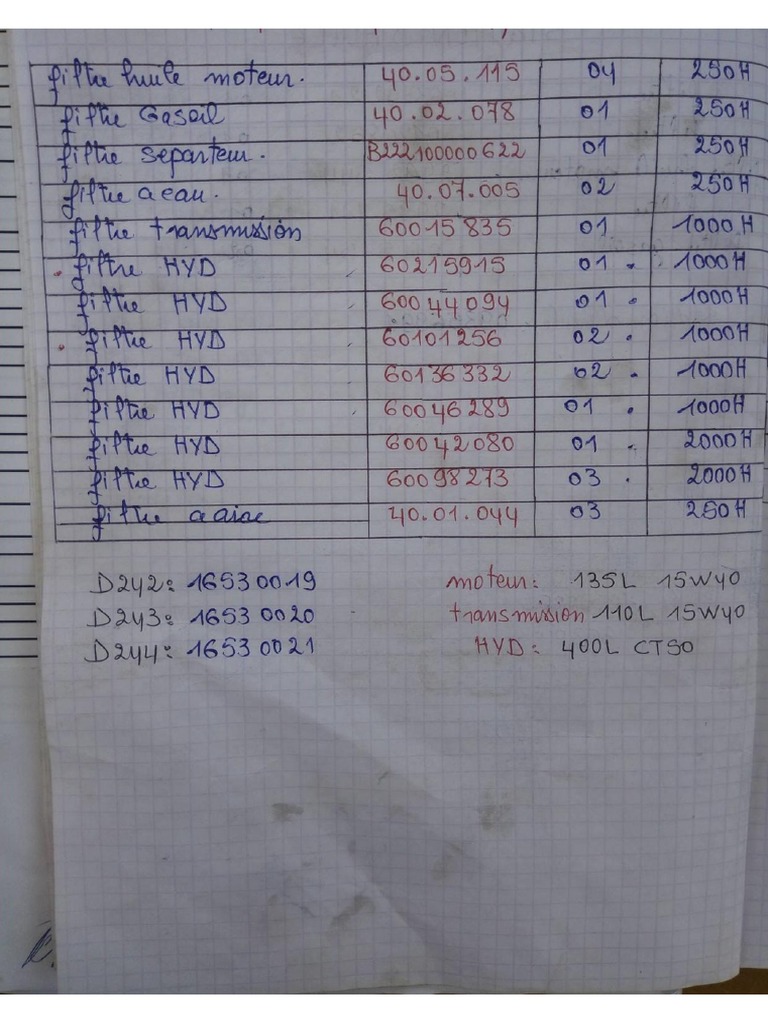 filtre huile moteur. 40.05.115 04 250H
filtre Gasoil 40.02.078 01 250H
filtre separteur. B222100000622 01 250H
filtre a eau. 40.07.005 02 250H
filtre transmission 60015835 01 1000H
filtre HYD 60215915 01 1000H
filtre HYD 60044094 01 1000H
filtre HYD 60101256 02 1000H
filtre HYD 60136332 02 1000H
filtre HYD 60046289 01 1000H
filtre HYD 60042080 01 2000H
filtre HYD 60098273 03 2000H
filtre a aiae 40.01.044 03 250H
D242: 16530019 moteur: 135L 15W40
D243: 16530020 transmission 110L 15W40
D244: 16530021 HYD: 400L CT50